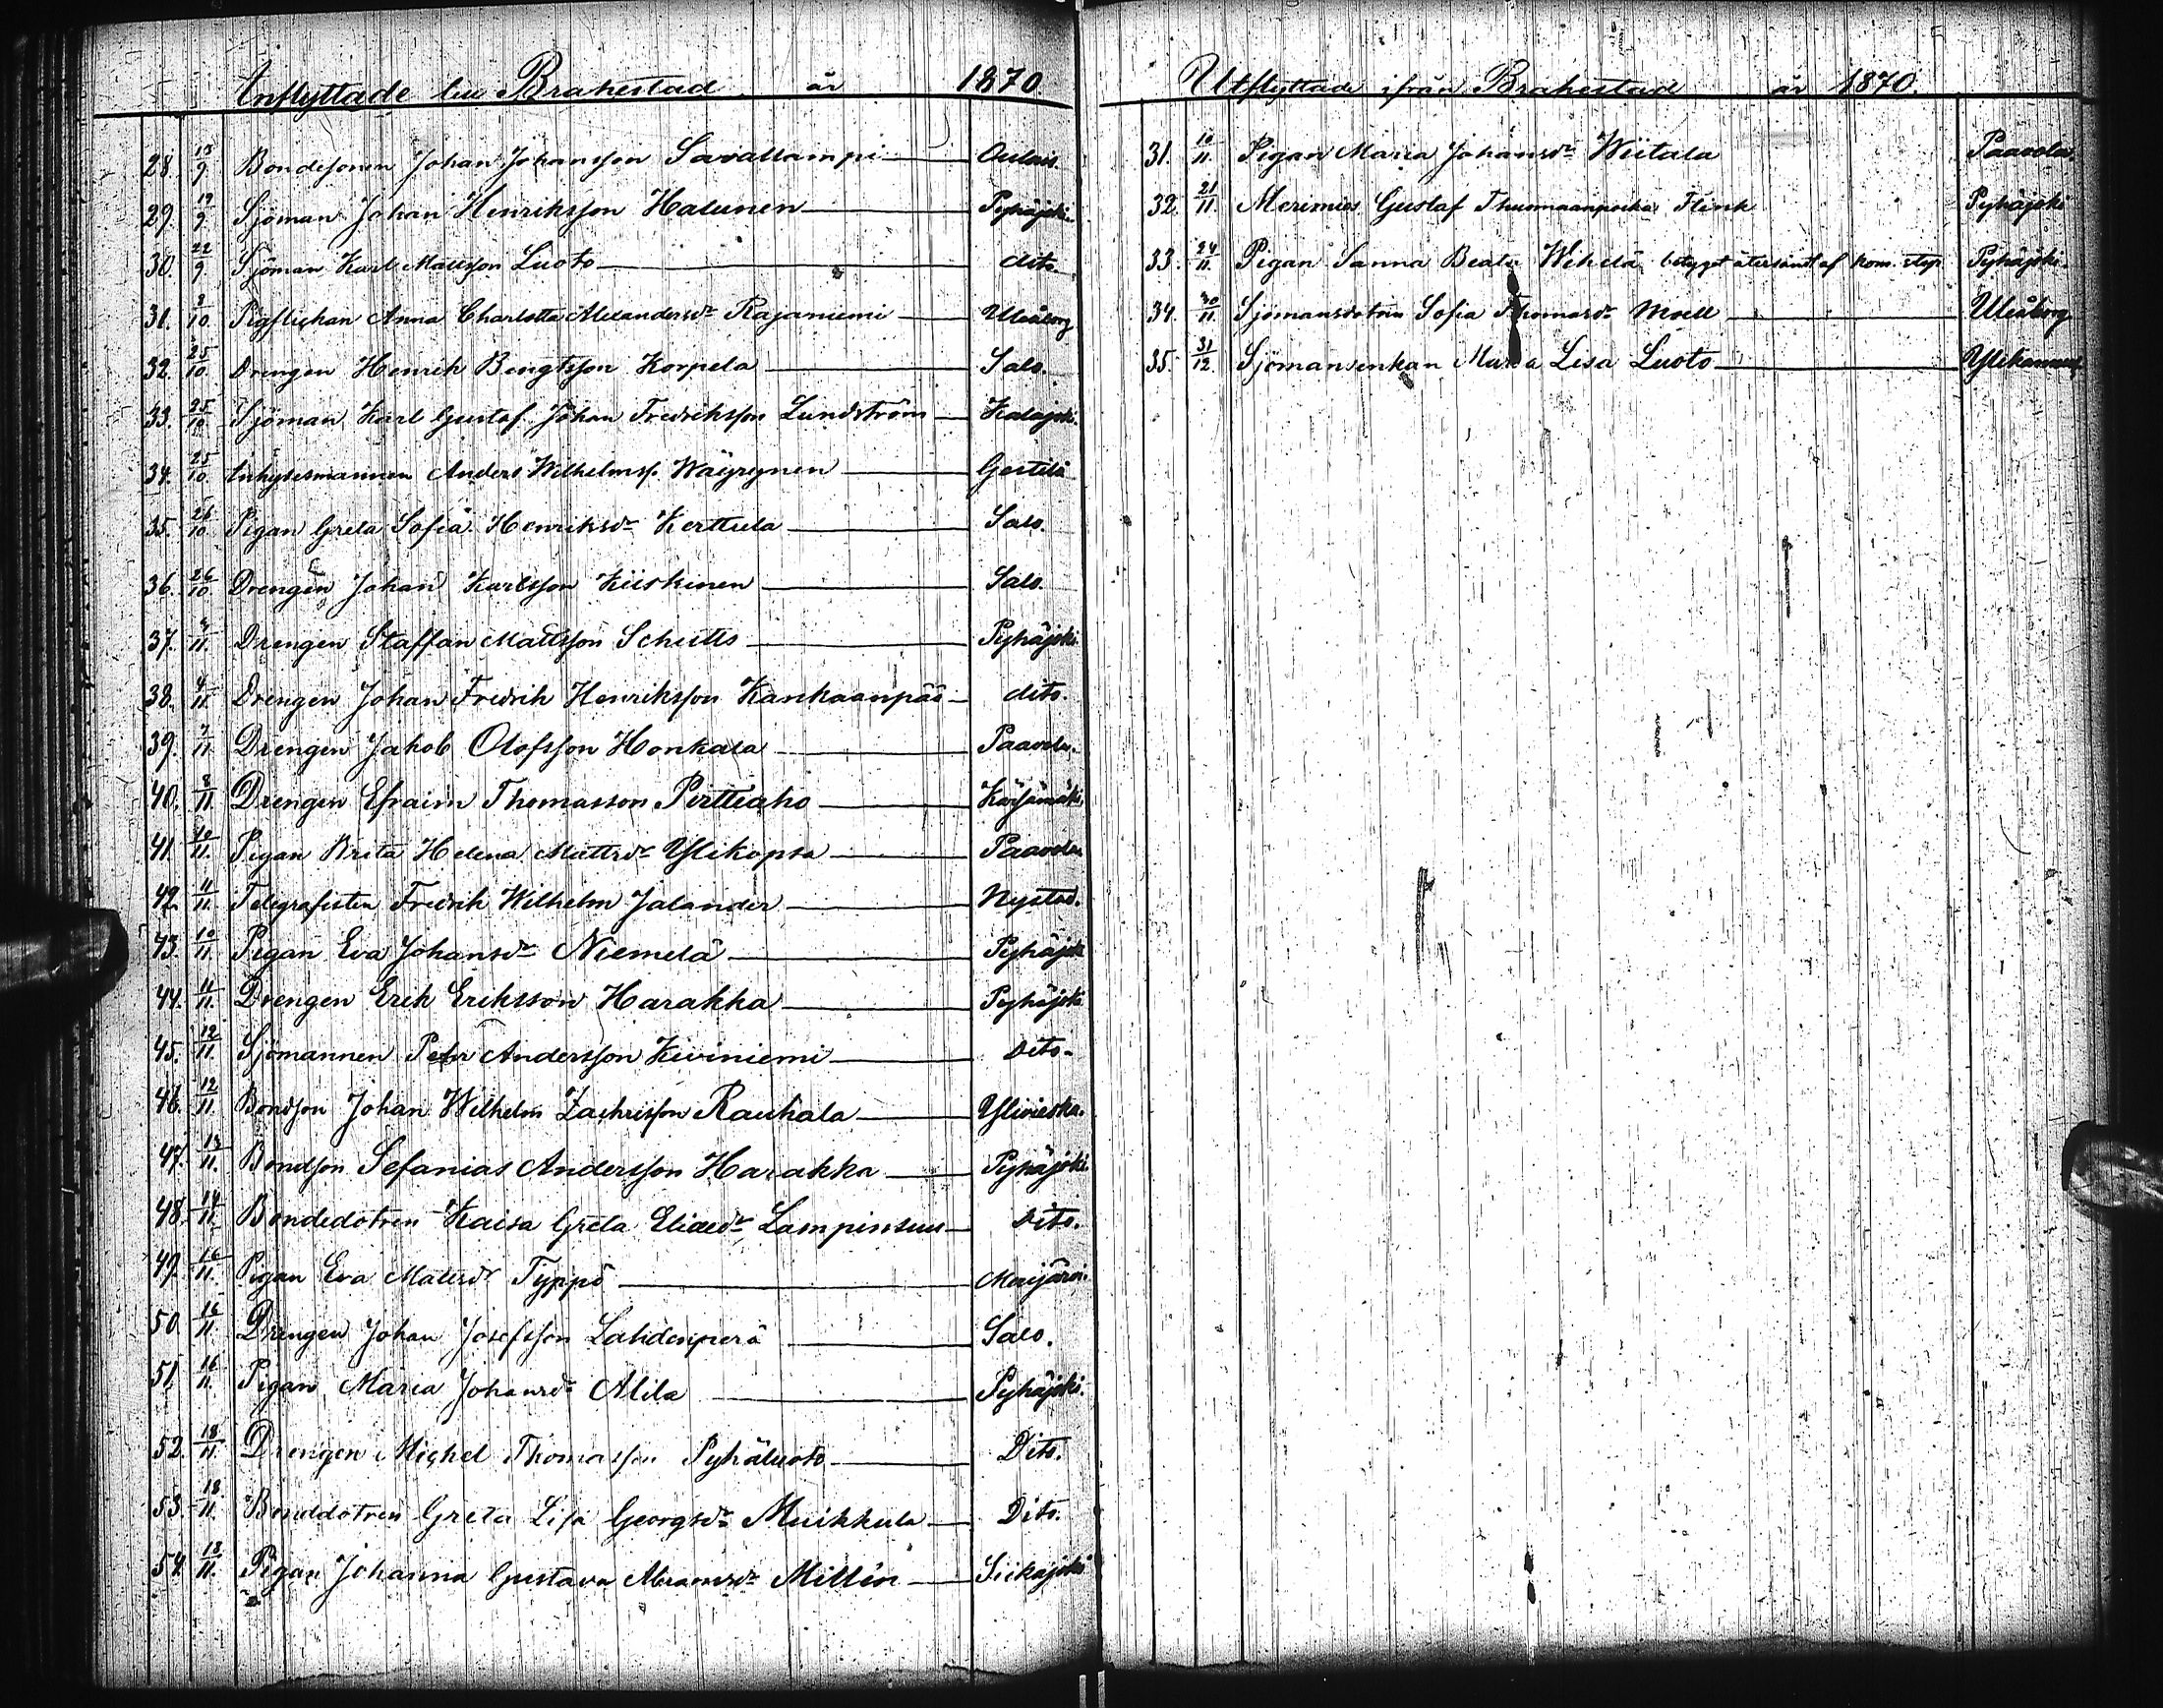 Inflyttade till Brahestad år 1870
28. 15/9 Bondesonen Johan Johansson Savallampi Oulais.
29. 19/9 Sjöman Johan Henriksson Halunen Pyhäjoki.
30. 22/9 Sjöman Karl Mattsson Luoto dito.
31. 8/10. Pigflickan Anna Charlotta Alexandersdr Rajaniemi Uleåborg
32. 25/10. Drengen Henrik Bengtsson Korpela Salo.
33. 25/10. Sjöman Karl Gustaf Johan Fredriksson Lundström Kalajoki.
34. 25/10. Inhysesmannen Anders Wilhelmss. Wäyrynen Gestilä
35. 26/10. Pigan Greta Sofia Henriksdr Kerttula Salo.
36. 26/10. Drengen Johan Karlsson Kiiskinen Salo.
37. /11. Drengen Staffan Mattsson Schults Pyhäjoki.
38. 4/11. Drengen Johan Fredrik Henriksson Kankaanpää dito.
39. 7/11. Drengen Jakob Olofsson Honkala Paavola.
40. 8/11. Drengen Efraim Thomasson Pirttiaho Kärsämäki.
41. 10/11. Pigan Brita Helena Mattsdr Ylikopsa Paavola
42. 11/11. Telegrafisten Fredrik Wilhelm Jalander Nystad.
43. 10/11. Pigan Eva Johansdr Niemelä Pyhäjoki
44. 11/11. Drengen Erik Eriksson Harakka Pyhäjoki
45. 12/11. Sjömannen Petr Andersson Kiviniemi Dito.
46. 12/11. Bondson Johan Wilhelm Zachrisson Rauhala Ylivieska.
47. 13/11. Bondson Sefanias Andersson Harakka Pyhäjoki.
48. 14/11. Bondedotren Kaisa Greta Eliaedr Lampinsuu Dito.
49. 16/11. Pigan Eva Mattsdr Typpö
50. 16/11. Drengen Johan Josefsson Lahdenperä Salo.
51. 16/11. Pigan Maria Johansdr Alila Pyhäjoki.
52. 18/11. Drengen Michel Thomasson Pyhäluoto Dito.
53. 18/11. Bonddotren Greta Lisa Georgsdr Muikkula Dito.
54. 18/11. Pigan Johanna Gustava Abramsdr Millin Siikajoki
Utflyttade ifrån Brahestad år 1870.
31. 10/11. Pigan Maria Johansdr Wiitala Paavola.
32. 21/11. Merimies Gustaf Thuomaanpoika Flink Pyhäjoki
33. 24/11. Pigan Sanna Beata Wihelä betyget återsändt af kom. Pyhäjoki.
34. 30/11. Sjömansdotren Sofia Thomasdr Moell Uleåborg
35. 31/12. Sjömansenkan Maria Lisa Luoto Ylikannus